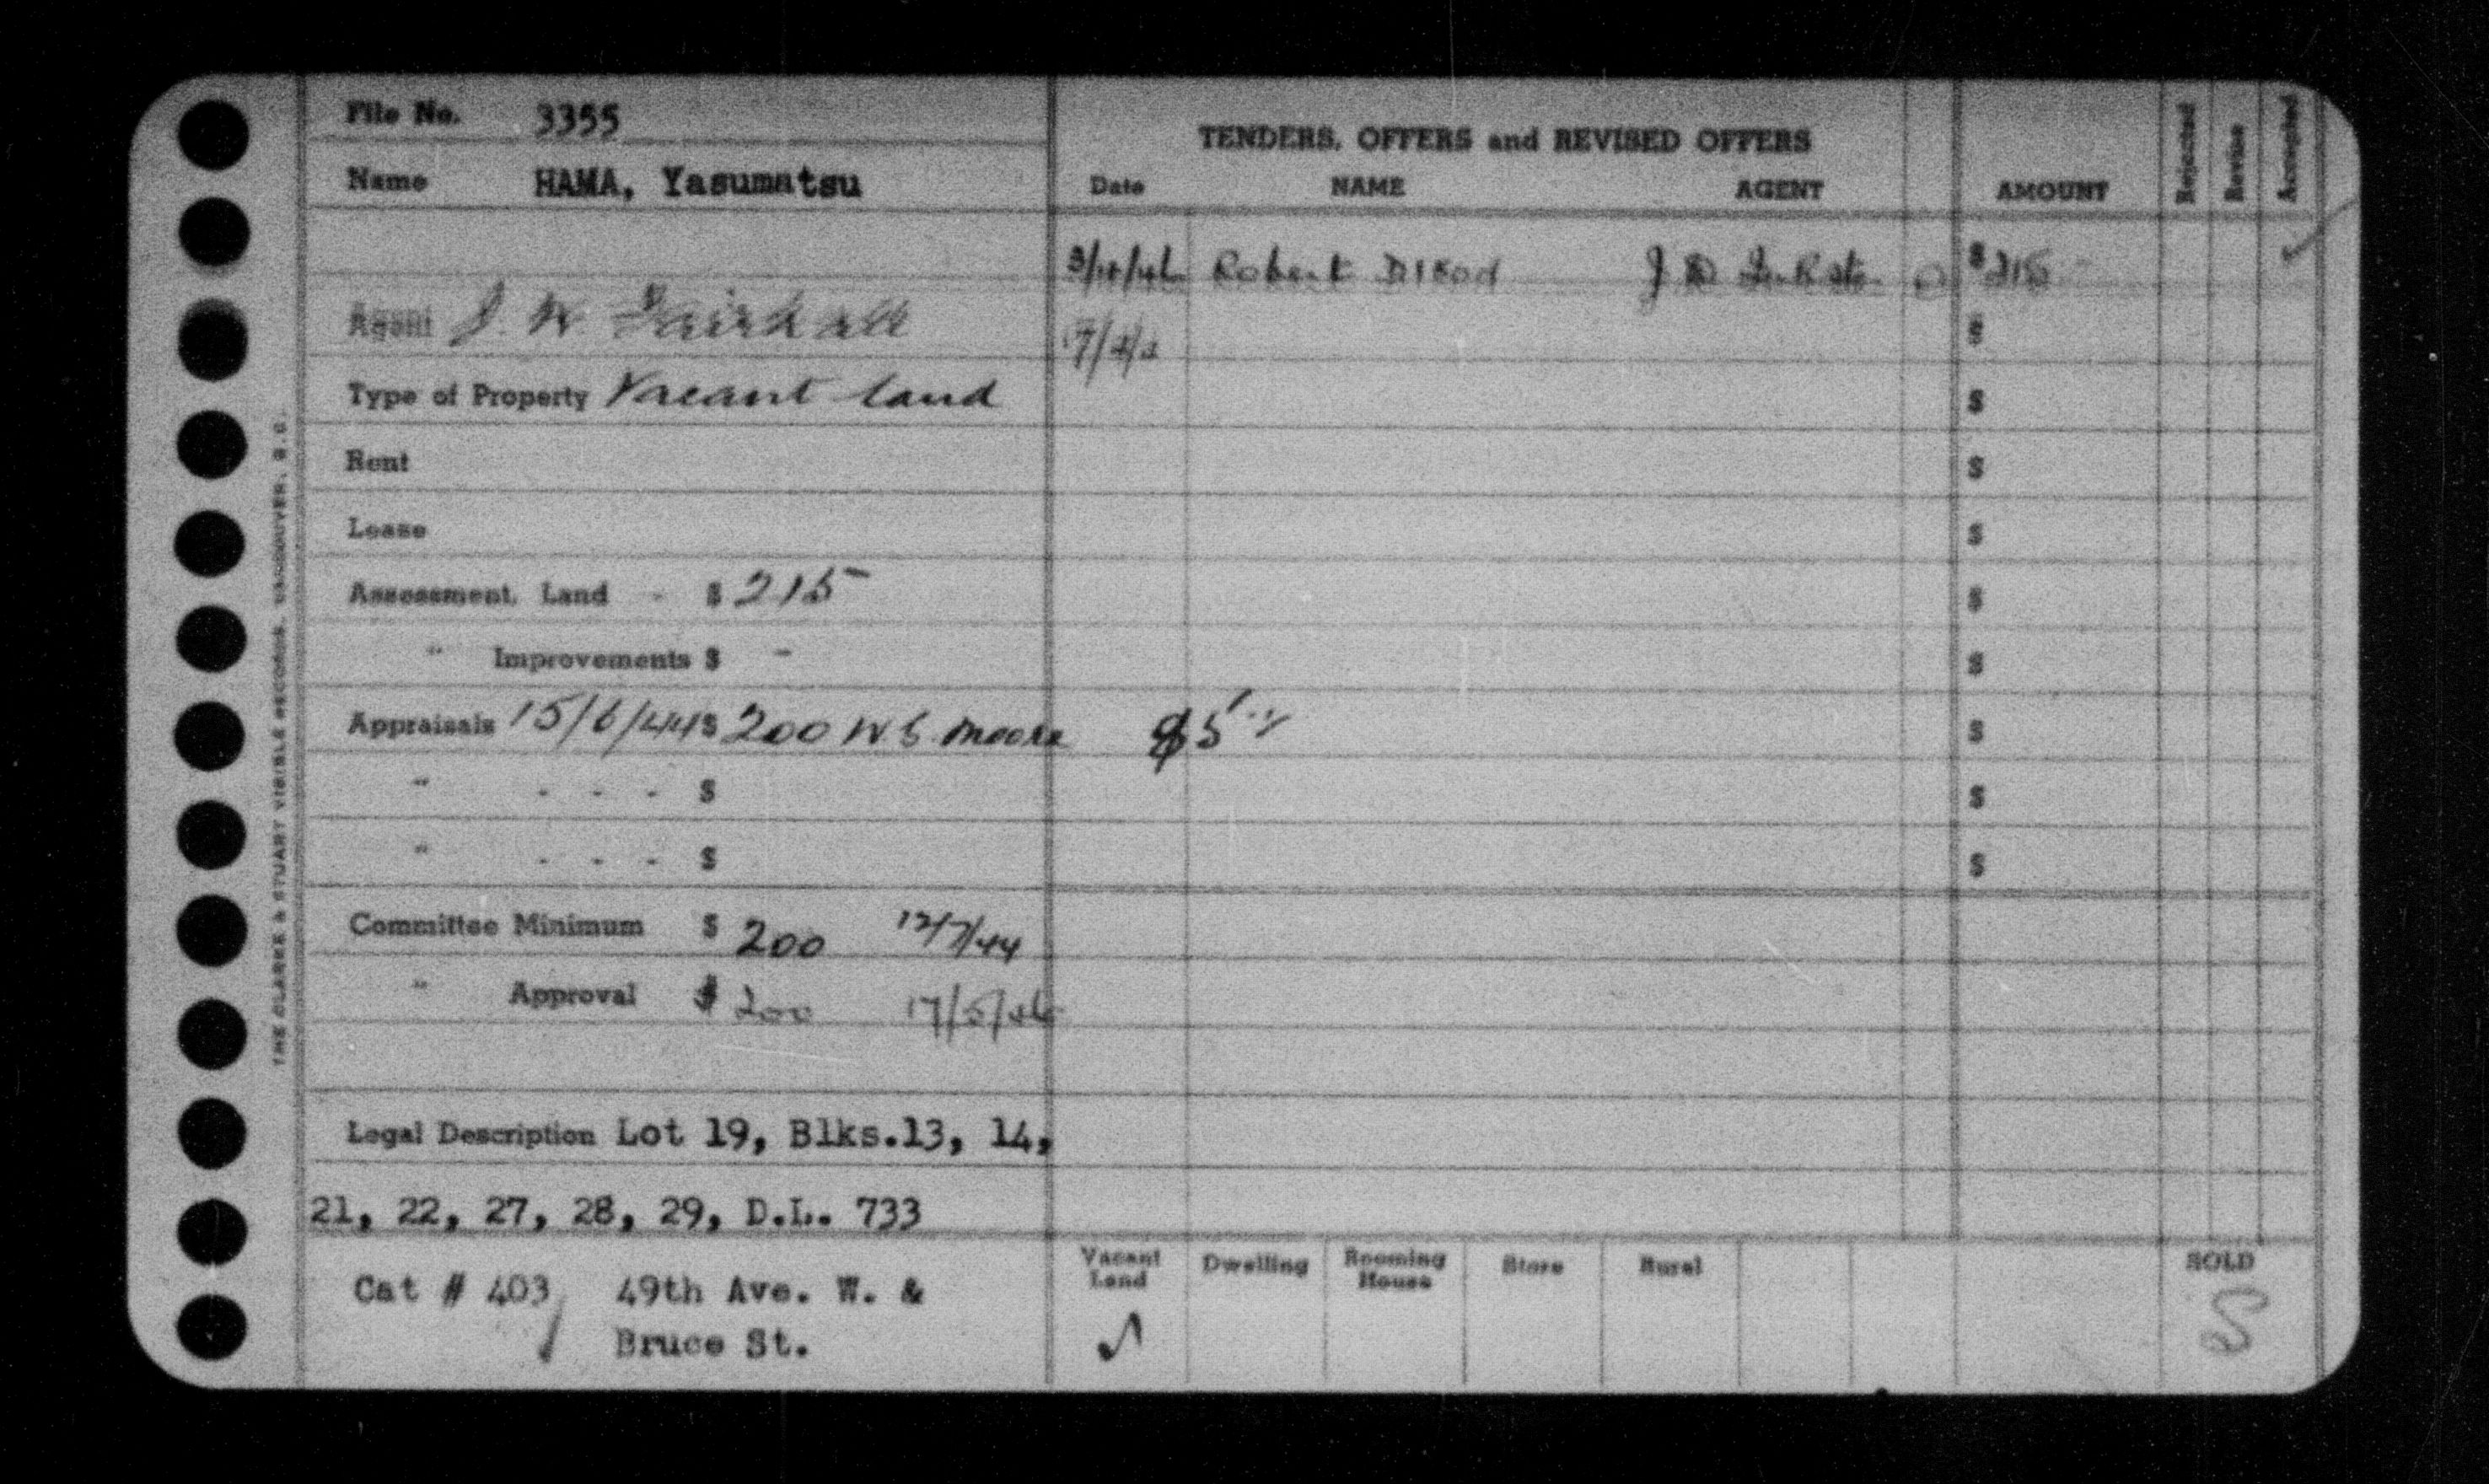 File No. 3355
Name HAMA, Yasumatsu
Agent J. W. Fairhall
Type of Property Vacant land
Rent
Lease
Assessment, Land - $ 215
" Improvements $ -
Appraisals 15/6/44 $ 200 W S Moore $5
" - - - $
" - - - $
Committee Minimum $ 200 12/7/44
" Approval $ 200 17/5/46
Legal Description Lot 19, Blks.13, 14,
21, 22, 27, 28, 29, D.L. 733
Cat # 403 49th Ave. W. &
Bruce St.
THE CLARKE & STUART VISIBLE RECORDS, VANCOUVER, B.C.
TENDERS, OFFERS and REVISED OFFERS
Date NAME AGENT AMOUNT Rejected Revise Accepted
Robert Dixon J D $ 215 ✓
$
$
$
$
$
$
$
$
$
Vacant Land Dwelling Rooming House Store Rural SOLD
✓ S